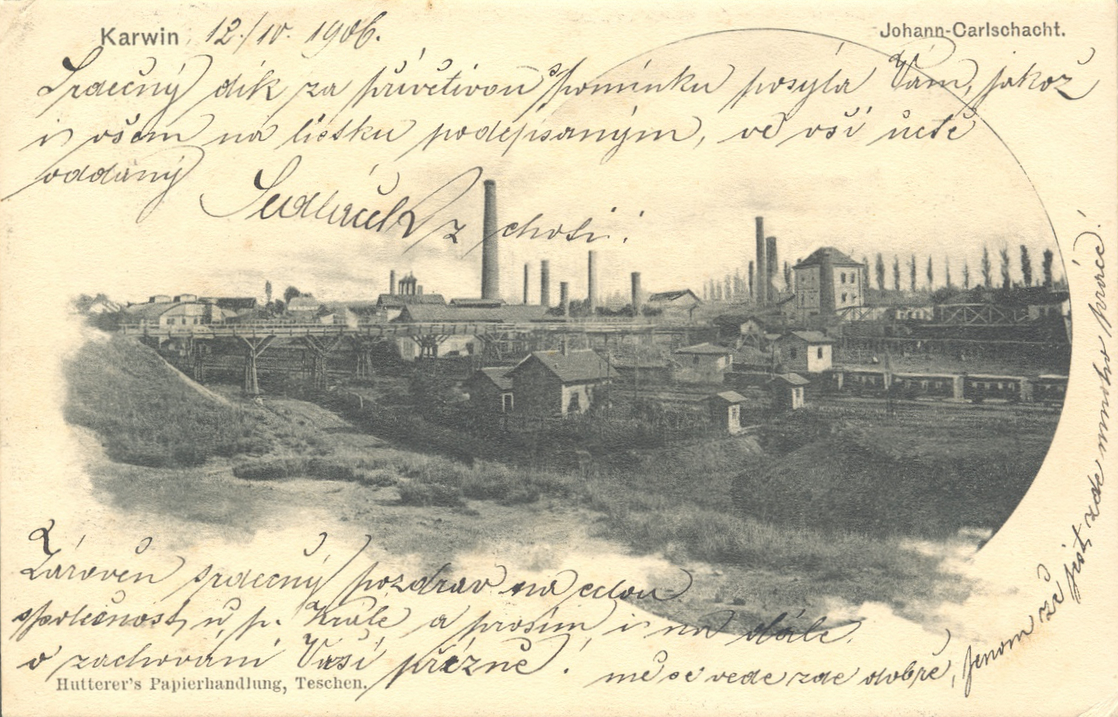 Karwin 12./IV. 1906. Johann-Carlschacht.
Srdečný dík za přívětivou vzpomínku posýlá Vám, jakož
i všem na lístku podepsaným, ve vší úctě
oddaný
Sedláček z chotí.
Zároveň srdečný pozdrav na celou
společnost u p. Krále a prosím i na dále
o zachování Vaší přízně!
mě se vede zde dobře, jenom že jest zde mnoho práce!
Hutterer's Papierhandlung, Teschen.